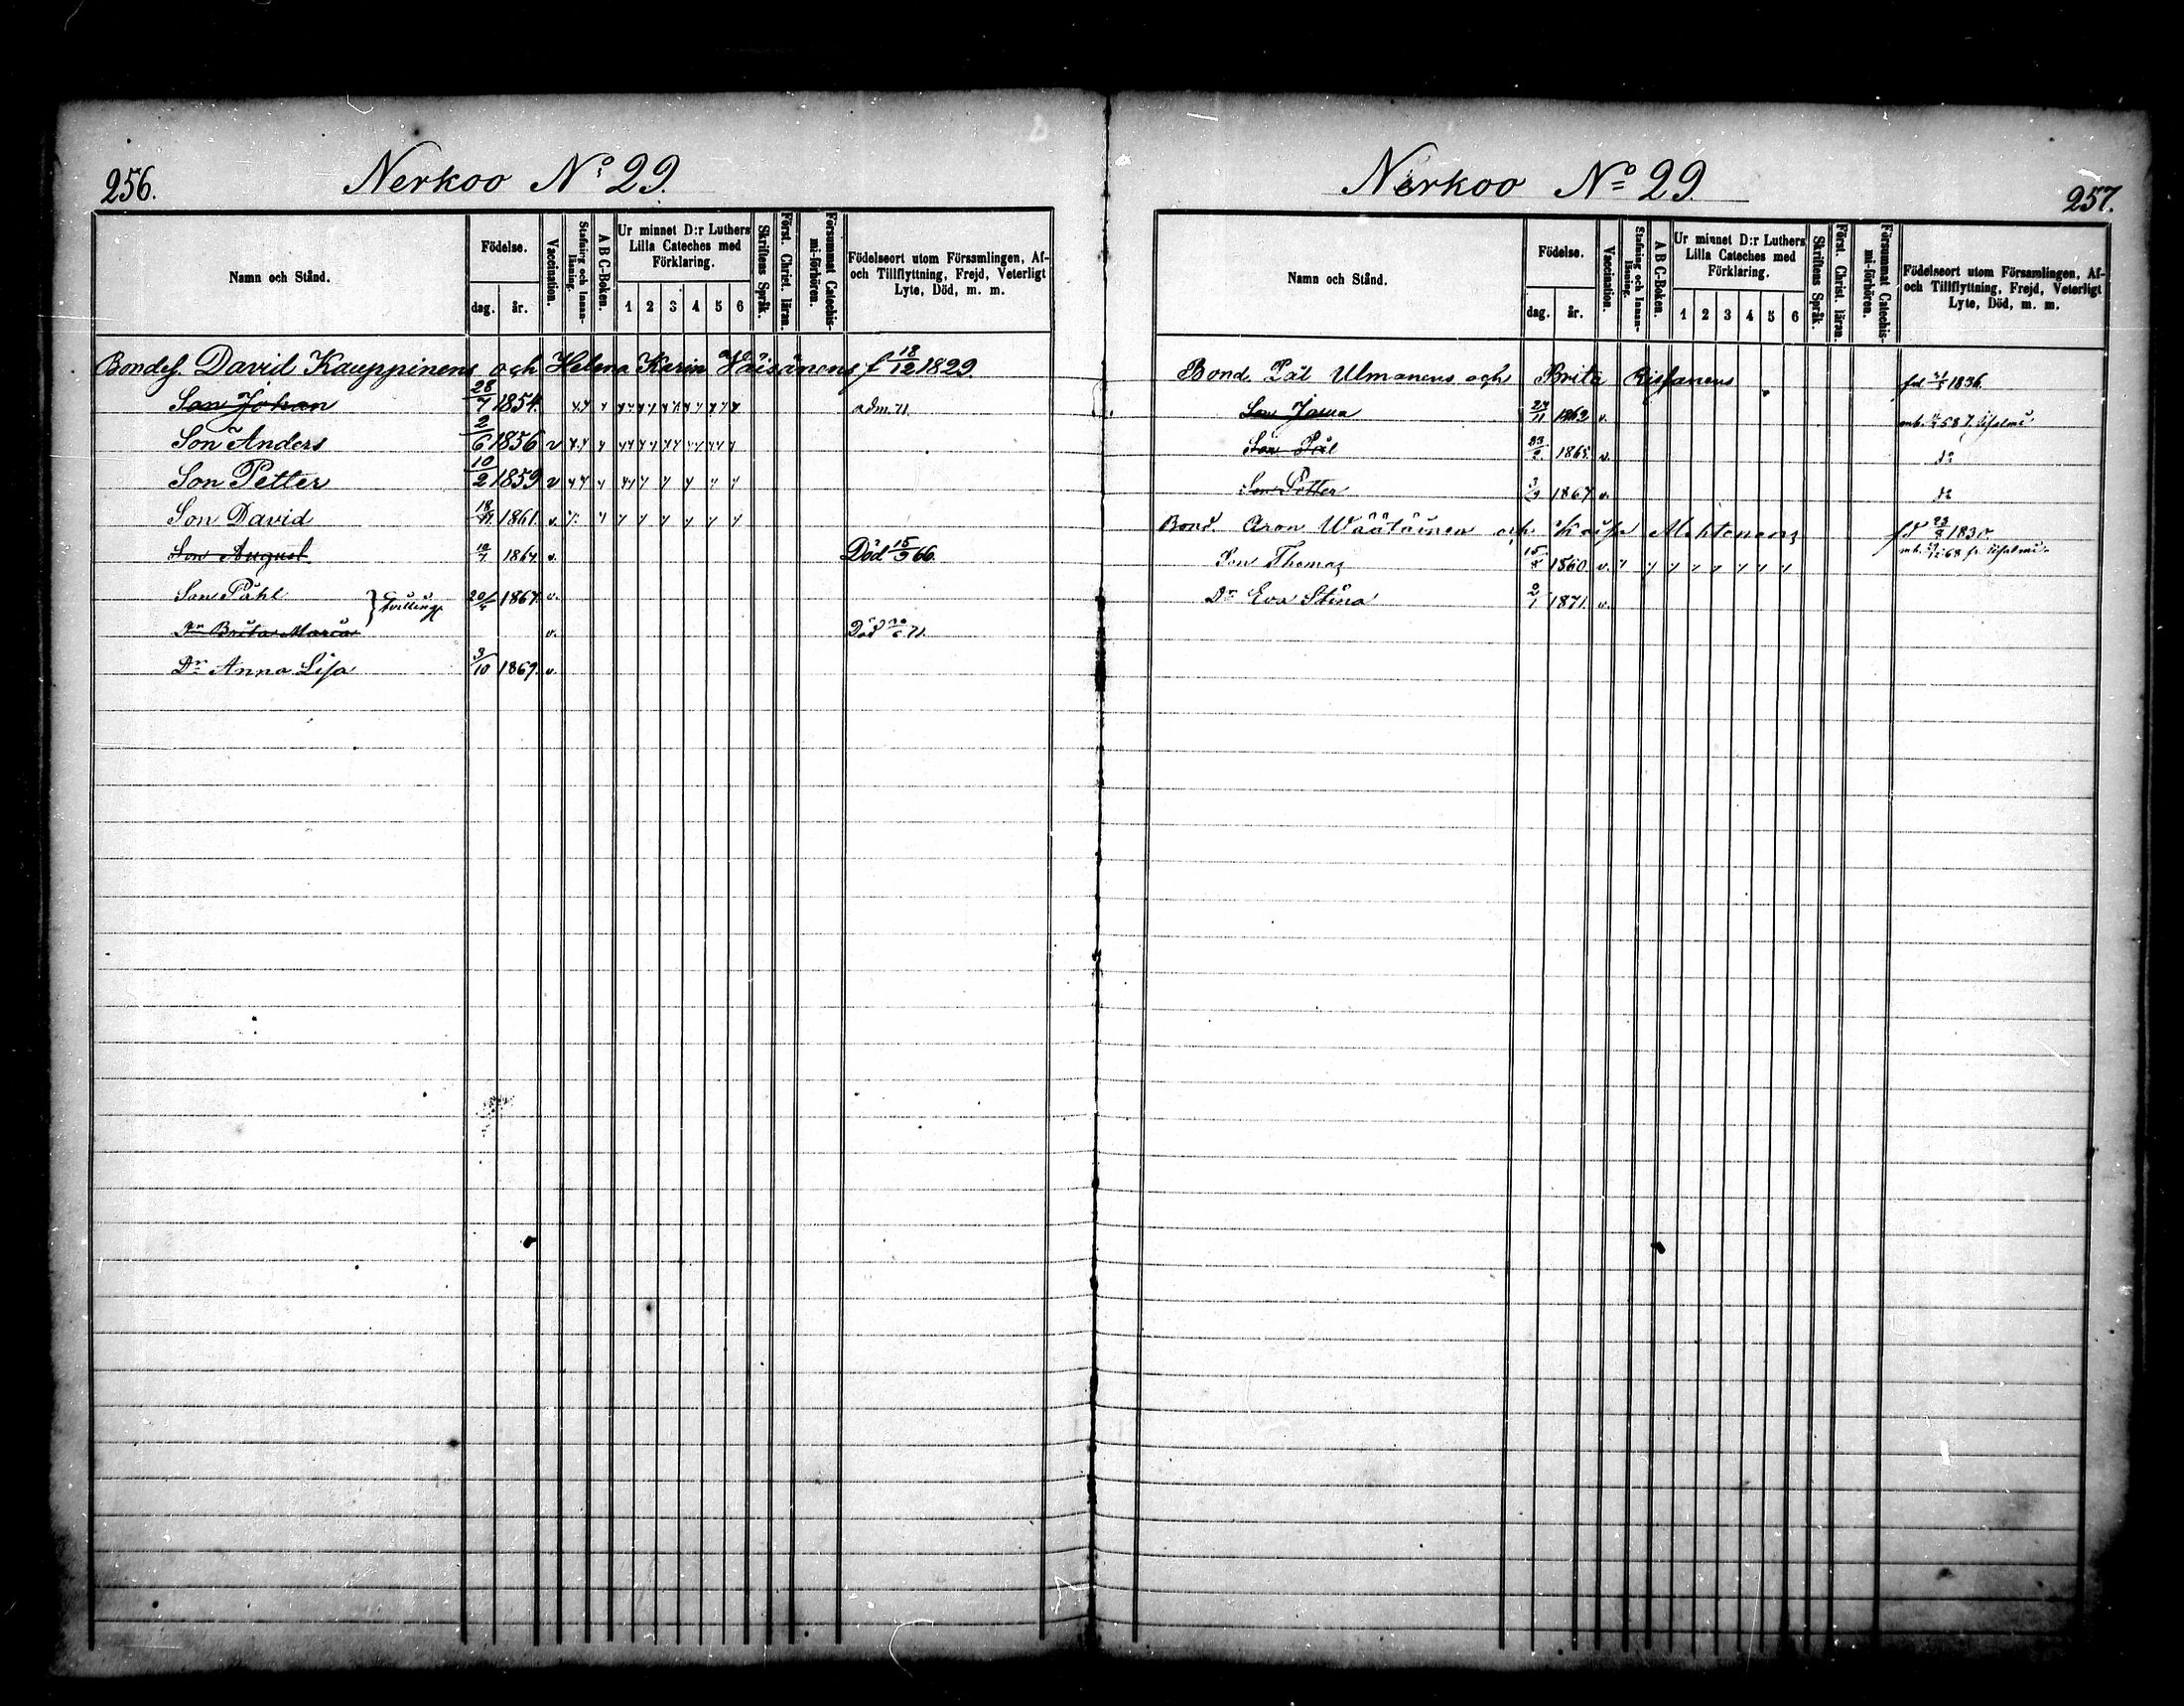 256.
Nerkoo No 29.
Namn och Stånd.
Födelse.
dag.
år.
Vaccination.
Stafning och Innanläsning.
A B C-Boken.
Ur minnet D:r Luthers Lilla Cateches med Förklaring.
1 2 3 4 5 6
Skriftens Språk.
Först. Christ. läran.
Försummat Catechismi-förhören.
Födelseort utom Församlingen, Af- och Tillflyttning, Frejd, Veterligt Lyte, Död, m. m.
Bondes. David Kauppinens och Helena Karin Väisänens f 18/12 1829.
Son Johan 28/7 1854. adm. 71
Son Anders 2/6 1856 v
Son Petter 10/2 1859 v
Son David 1861. v.
Son August 1864 v. Död 15/9 66.
Son Påhl 1867. v. tvilling
Dr Brita Maria v. Död 71.
Dr Anna Lisa 3/10 1869. v.
257.
Nerkoo No 29
Namn och Stånd.
Födelse.
dag.
år.
Vaccination.
Stafning och Innanläsning.
A B C-Boken.
Ur minnet D:r Luthers Lilla Cateches med Förklaring.
1 2 3 4 5 6
Skriftens Språk.
Först. Christ. läran.
Försummat Catechismi-förhören.
Födelseort utom Församlingen, Af- och Tillflyttning, Frejd, Veterligt Lyte, Död, m. m.
Bond. Pål Ulmanens och Brita 1836.
Son 1862 v.
Son Pål 1865. v. do
Son Petter 1867 v. do
Bond. Aron Wäätäinen och Kaisa fd 1830
Son Thomas 15/8 1860. v.
Dr Eva Stina 2/1 1871. v.